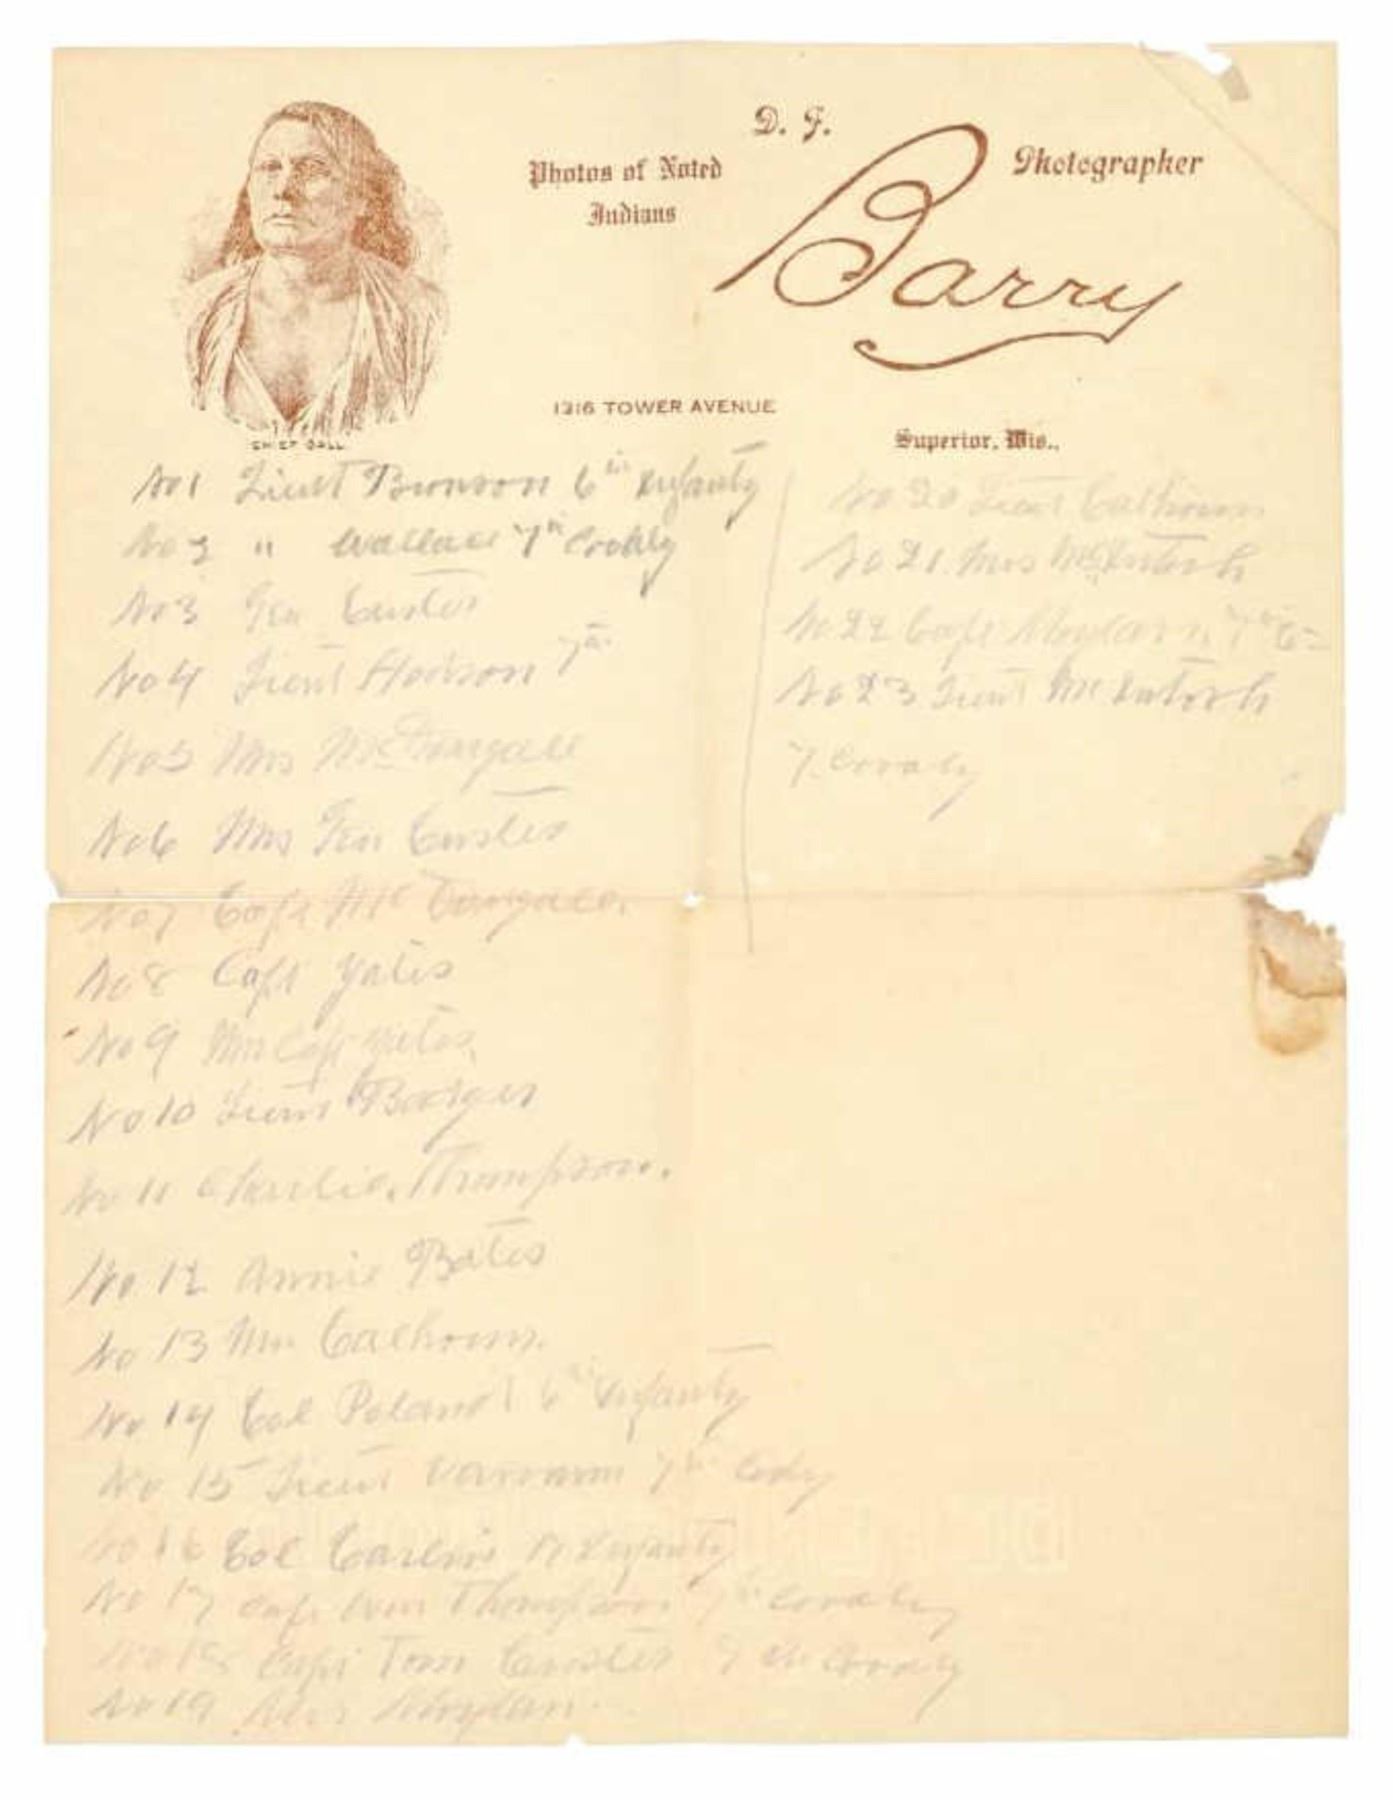 D. F.
Barry
Photographer
Photos of Noted
Indians
1316 TOWER AVENUE
Superior, Wis.,
CHIEF GALL
No 1 Lieut Bronson 6th Infanty
No 2 " Wallace 7th
No 3 Gen Custer
No 4 Lieut Hodson 7th
No 5 Mrs McDougall
No 6 Mrs Gen Custer
No 7 Capt Mc Dougall.
No 8 Capt Yates
No 9 Mrs Capt Yates
No 10 Lieut
No 11 Charlie. Thompson.
No 12 Annie Bates
No 13 Mrs Calhoun.
No 14 Col Poland 6th Infanty
No 15 Lieut Varnum 7th
No 16 Col Carlin 17 Infanty
No 17 Capt Thompson 7th
No 18 Capt Tom Custer 7th
No 19 Mrs Moylan.
No 20 Lieut Calhoun
No 21 Mrs McIntosh
No 22 Capt Moylan 7th C
No 23 Lieut McIntosh
7.